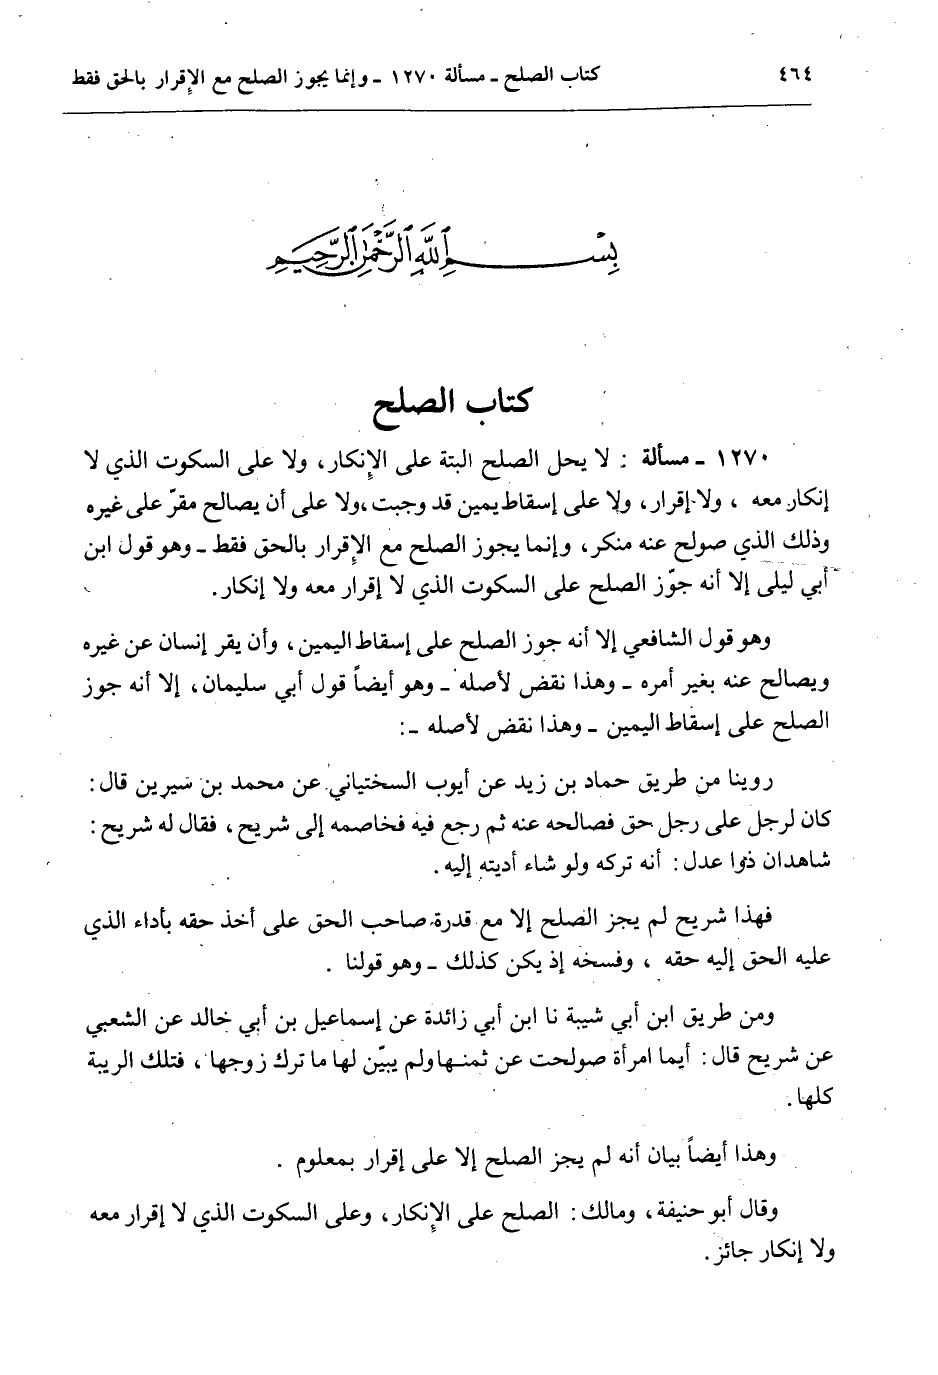 ٤٦٤ كتاب الصلح ـ مسألة ١٢٧٠ ـ وإنما يجوز الصلح مع الإقرار بالحق فقط
بِسْمِ اللَّهِ الرَّحْمَٰنِ الرَّحِيمِ
كتاب الصلح
١٢٧٠ ـ مسألة : لا يحل الصلح البتة على الإنكار، ولا على السكوت الذي لا
إنكار معه ، ولا إقرار، ولا على إسقاط يمين قد وجبت ،ولا على أن يصالح مقرّ على غيره
وذلك الذي صولح عنه منكر، وإنما يجوز الصلح مع الإقرار بالحق فقط ـ وهو قول ابن
أبي ليلى إلا أنه جوّز الصلح على السكوت الذي لا إقرار معه ولا إنكار.
وهو قول الشافعي إلا أنه جوز الصلح على إسقاط اليمين، وأن يقر إنسان عن غيره
ويصالح عنه بغير أمره ـ وهذا نقض لأصله ـ وهو أيضاً قول أبي سليمان، إلا أنه جوز
الصلح على إسقاط اليمين ـ وهذا نقض لأصله ـ:
روينا من طريق حماد بن زيد عن أيوب السختياني عن محمد بن سيرين قال:
كان لرجل على رجل حق فصالحه عنه ثم رجع فيه فخاصمه إلى شريح، فقال له شريح:
شاهدان ذوا عدل: أنه تركه ولو شاء أديته إليه.
فهذا شريح لم يجز الصلح إلا مع قدرة صاحب الحق على أخذ حقه بأداء الذي
عليه الحق إليه حقه ، وفسخه إذ يكن كذلك ـ وهو قولنا .
ومن طريق ابن أبي شيبة نا ابن أبي زائدة عن إسماعيل بن أبي خالد عن الشعبي
عن شريح قال: أيما امرأة صولحت عن ثمنها ولم يبيّن لها ما ترك زوجها، فتلك الريبة
كلها.
وهذا أيضاً بيان أنه لم يجز الصلح إلا على إقرار بمعلوم .
وقال أبو حنيفة، ومالك: الصلح على الإنكار، وعلى السكوت الذي لا إقرار معه
ولا إنكار جائز.